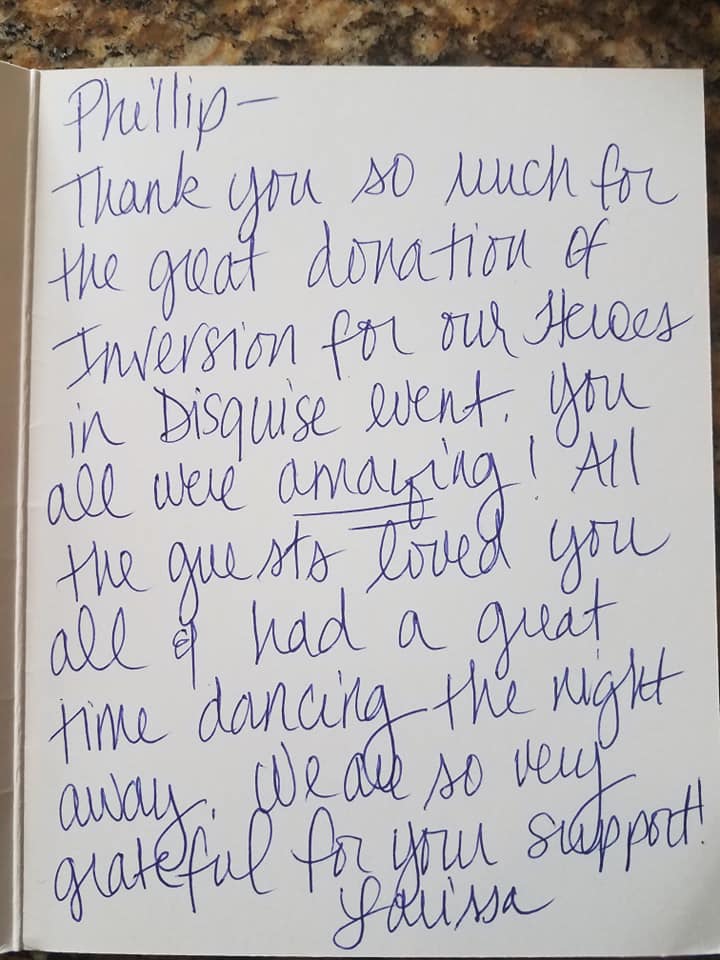 Phillip-
Thank you so much for
the great donation of
Inversion for our Heroes
in Disguise event. You
all were amazing! All
the guests loved you
all & had a great
time dancing the night
away. We are so very
grateful for your support!
Larissa